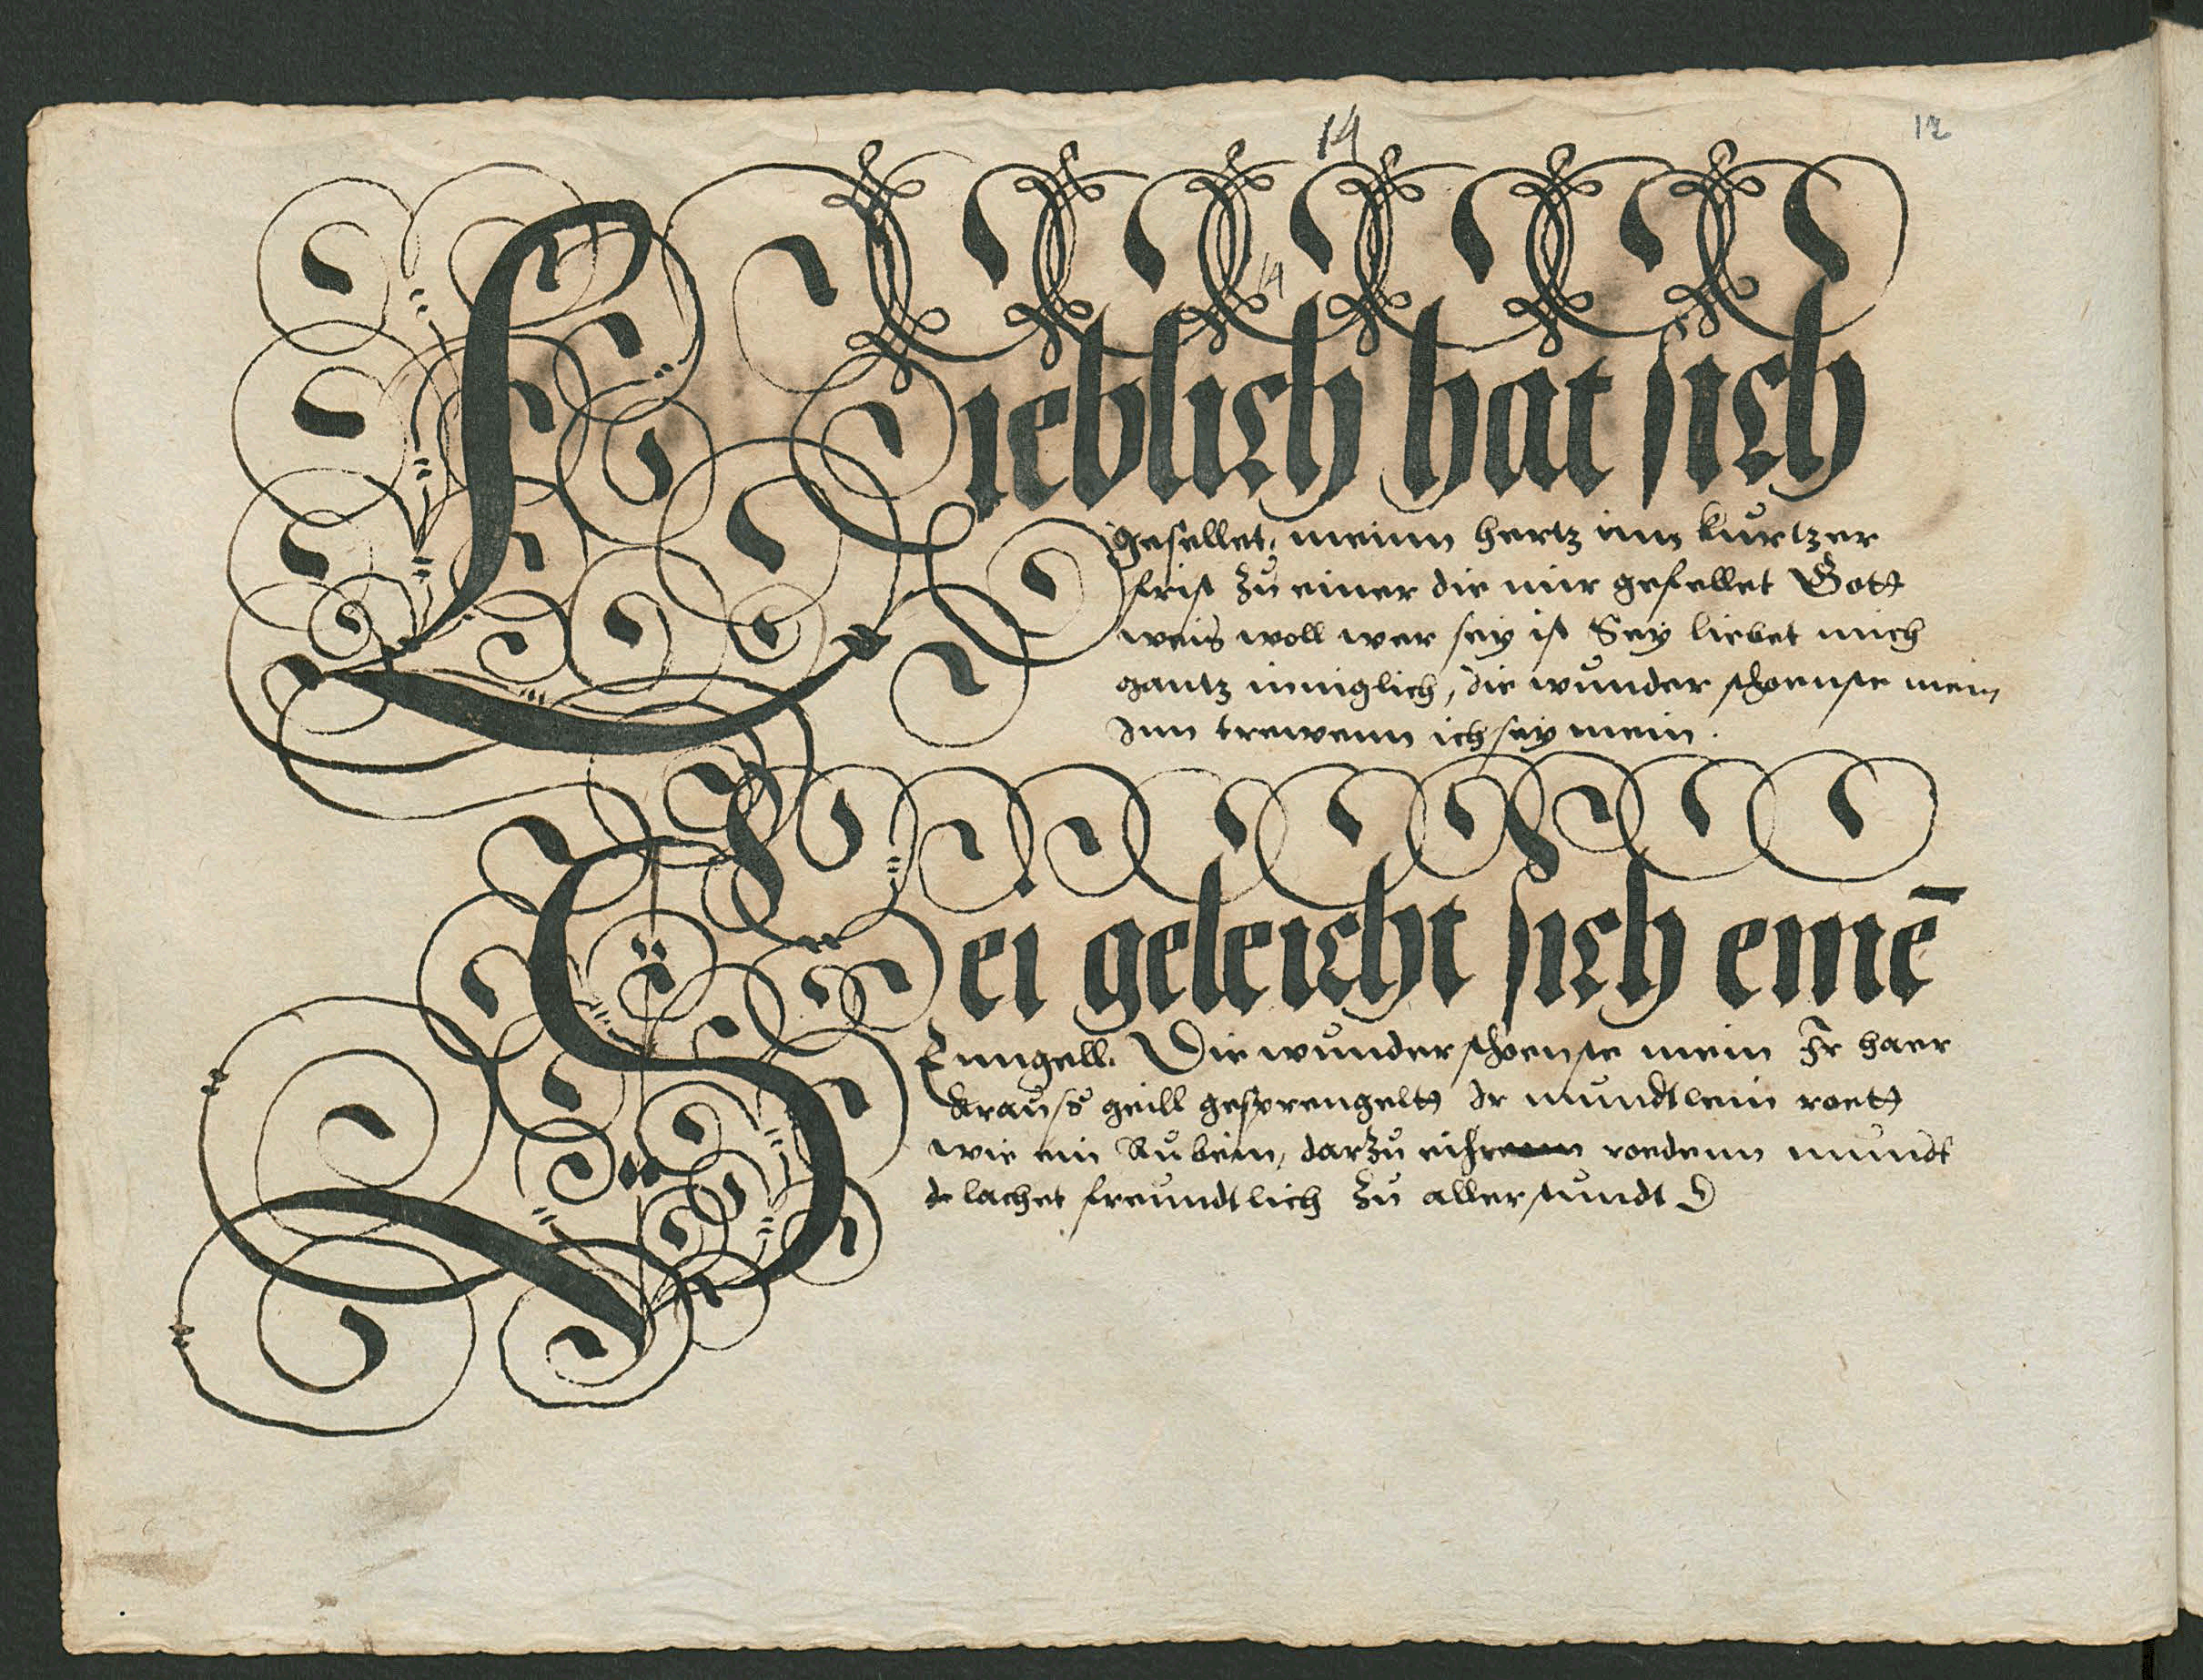 14
12
14
Lieblich hat sich
gesellet, meinn hertz inn kurtzer
frist zu einer die mir gefellet Gott
weis woll wer sey ist Sey liebet mich
gantz inniglich, die wunder schoenste mein
Inn trewenn ich sey mein.
Sei geleicht sich emē
Enngell. Die wunder schoenste mein Ir haer
krauss geill gesprengelt Ir mundtlein roett
wie ein Rubein, darzu roedenn mundt
lachet freundtlich zu aller stundt